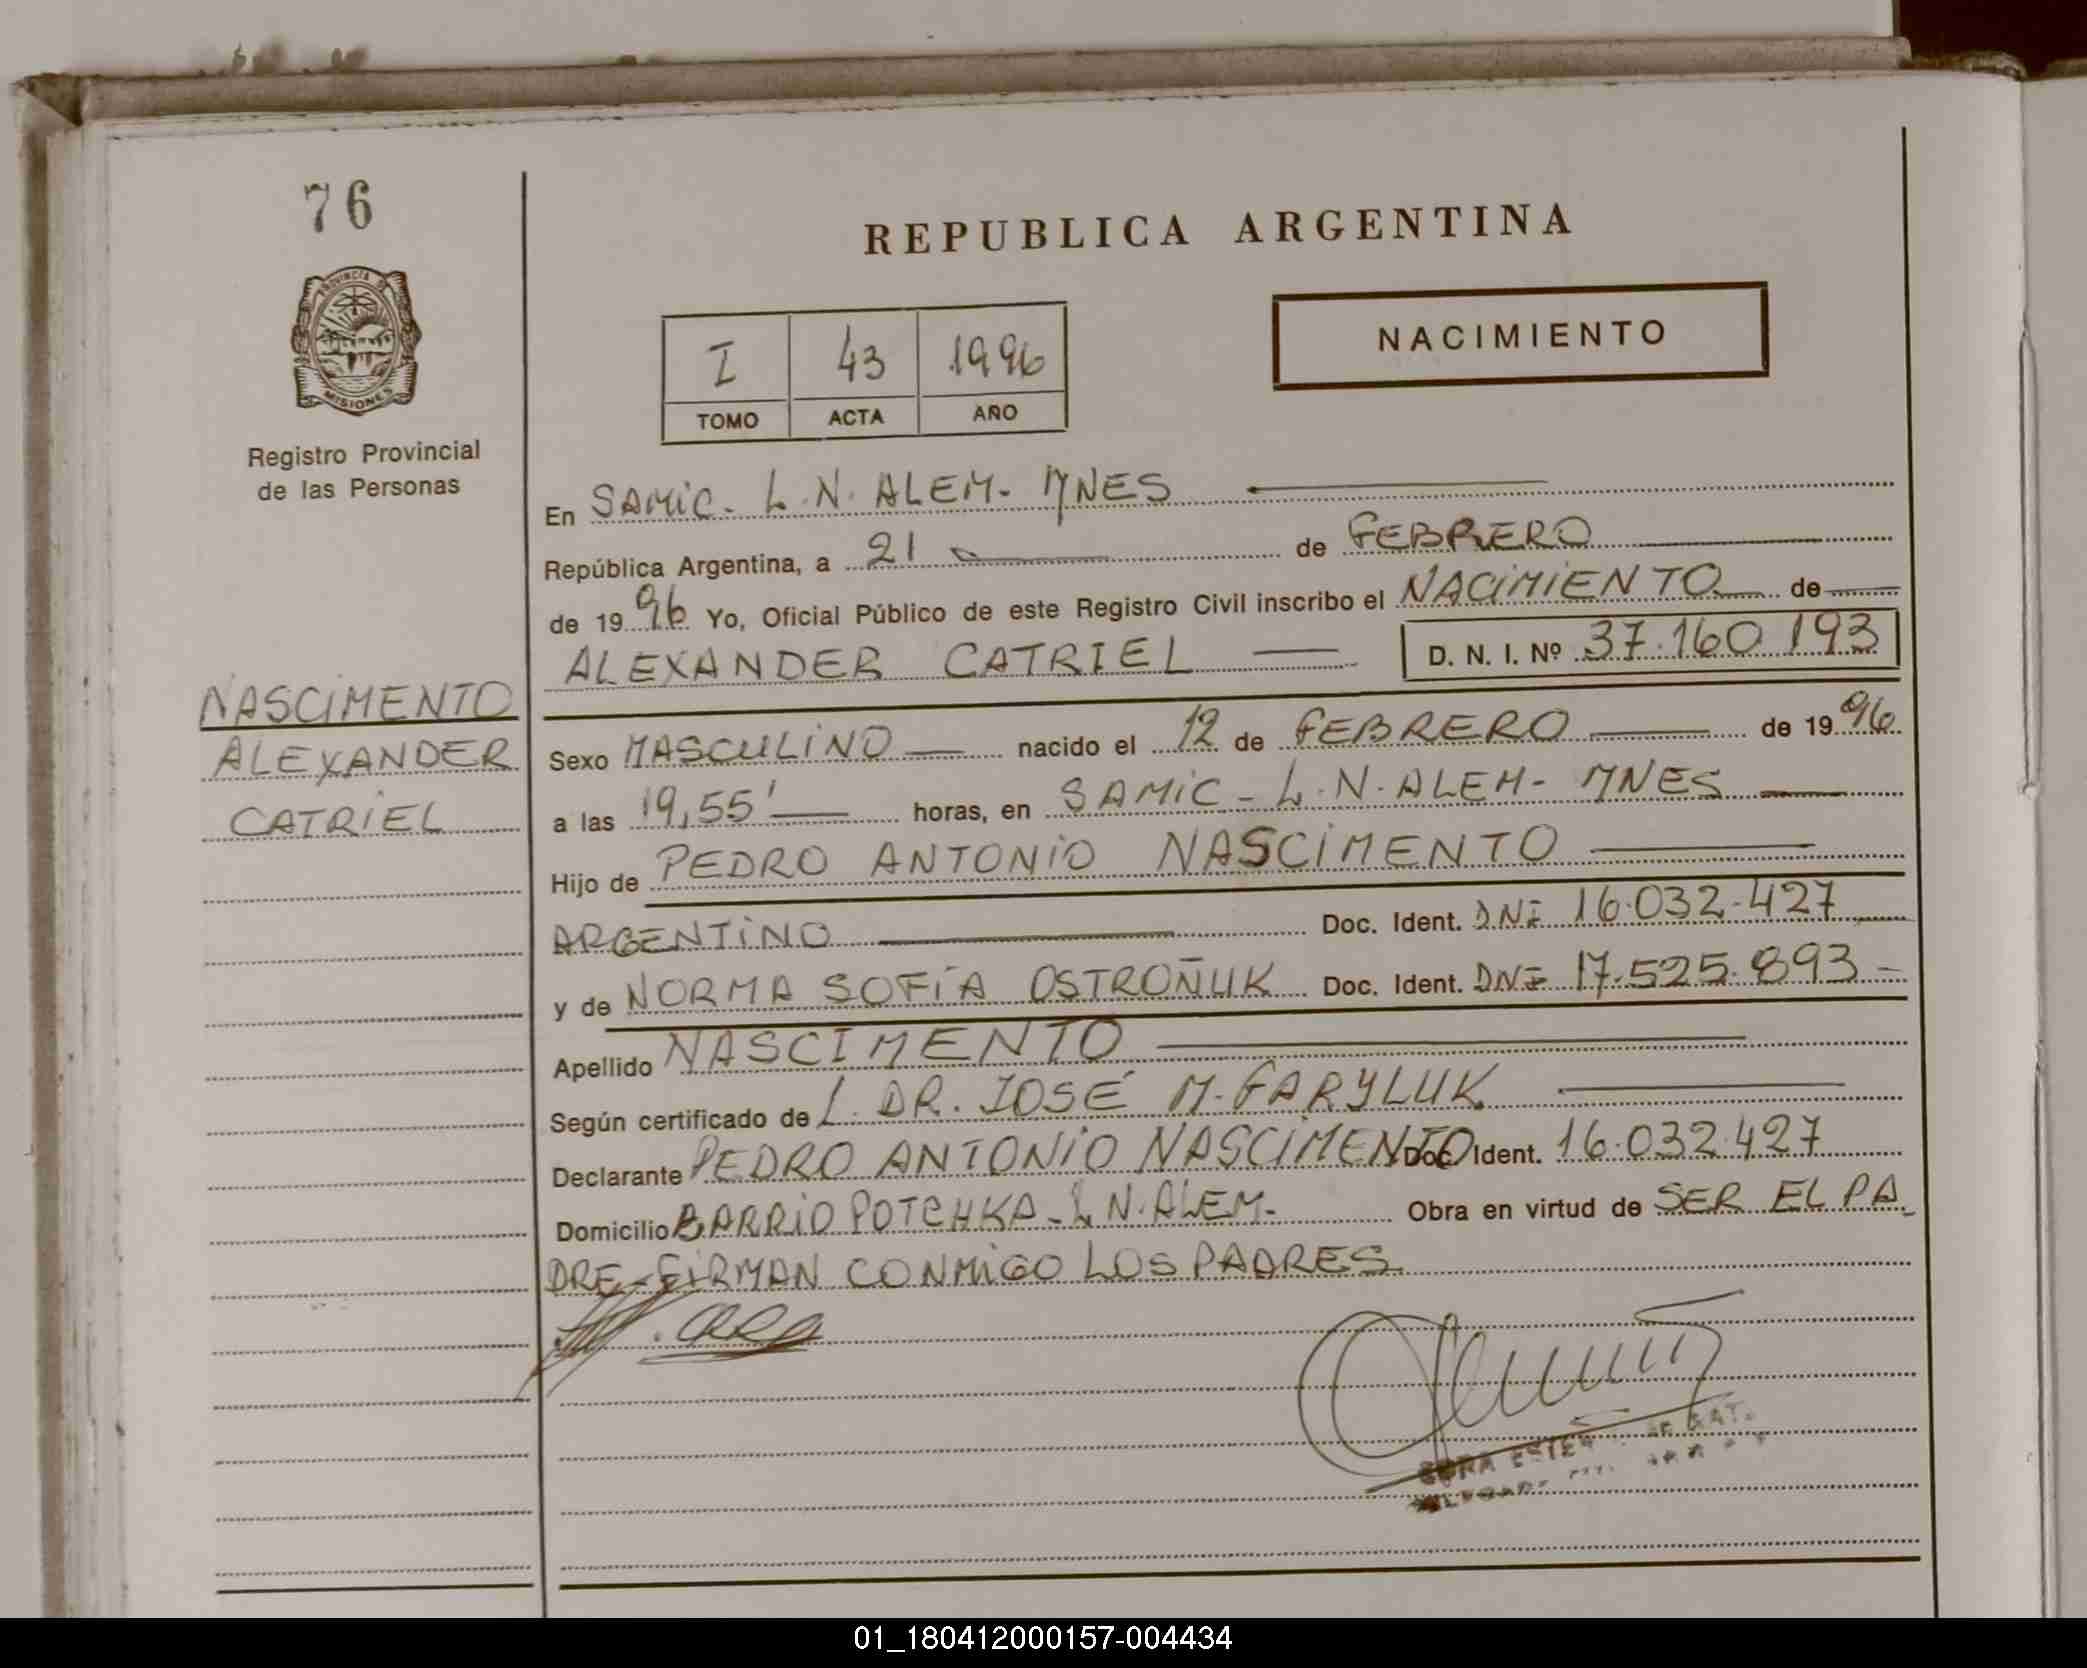 76
REPUBLICA ARGENTINA
PROVINCIA DE
MISIONES
I 43 1996
TOMO ACTA AÑO
NACIMIENTO
Registro Provincial
de las Personas
En SAMIC. L.N. ALEM- MNES
República Argentina, a 21 de FEBRERO
de 1996 Yo, Oficial Público de este Registro Civil inscribo el NACIMIENTO de
ALEXANDER CATRIEL D. N. I. Nº 37.160.193
NASCIMENTO
ALEXANDER
CATRIEL
Sexo MASCULINO nacido el 12 de FEBRERO de 1996
a las 19,55' horas, en SAMIC - L.N. ALEM - MNES
Hijo de PEDRO ANTONIO NASCIMENTO
ARGENTINO Doc. Ident. DNI 16.032.427
y de NORMA SOFÍA OSTROÑUK Doc. Ident. DNI 17.525.893 -
Apellido NASCIMENTO
Según certificado de L. DR. JOSÉ M. GARYLUK
Declarante PEDRO ANTONIO NASCIMENTO Doc. Ident. 16.032.427
Domicilio BARRIO POTCHKA - L.N. ALEM- Obra en virtud de SER EL PA
DRE - FIRMAN CONMIGO LOS PADRES.
01_180412000157-004434